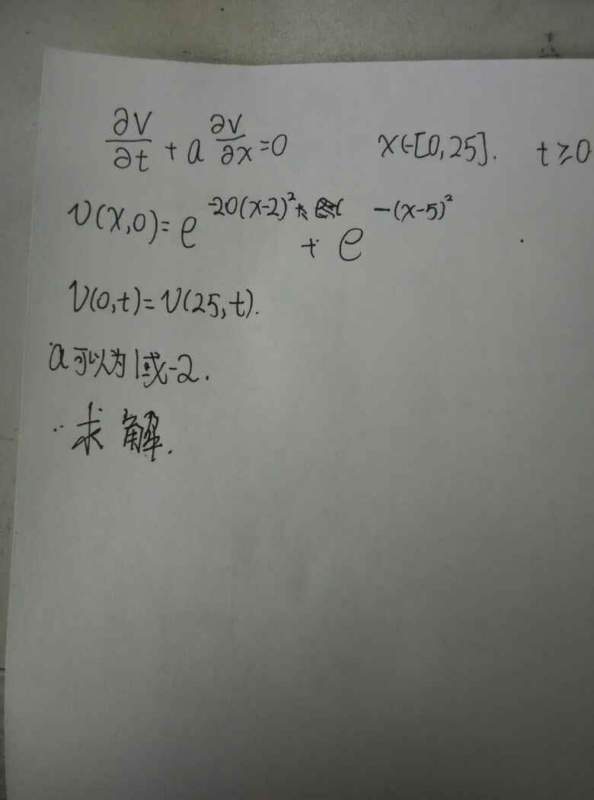 ∂V/∂t + a ∂V/∂x = 0 x∈[0,25]. t≥0
V(x,0) = e^{-20(x-2)²} + e^{-(x-5)²}
V(0,t) = V(25,t).
a可以为1或-2.
求解.